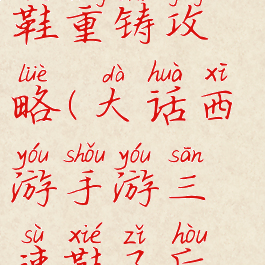 鞋重铸攻
lüè dà huà xī
略(大话西
yóu shǒu yóu sān
游手游三
sù xié zǐ hòu
速鞋子后